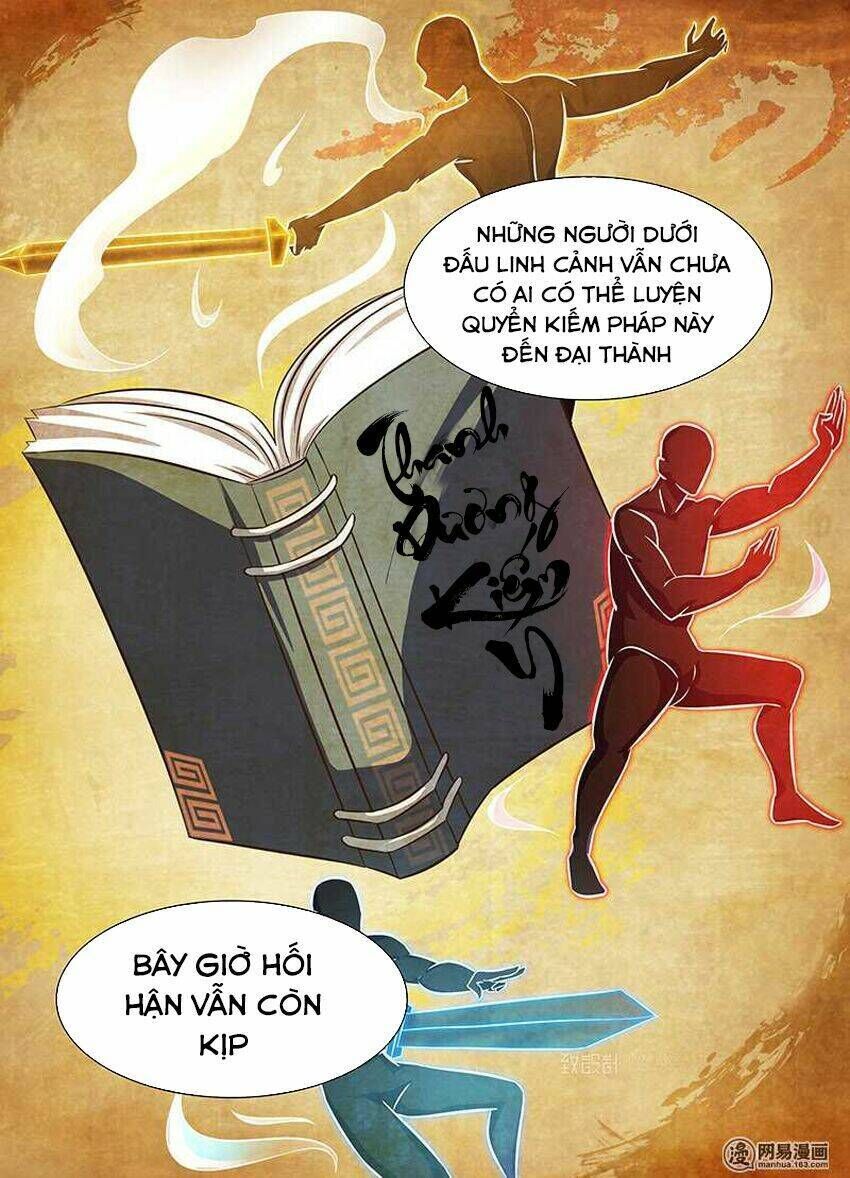 NHỮNG NGƯỜI DƯỚI
ĐẤU LINH CẢNH VẪN CHƯA
CÓ AI CÓ THỂ LUYỆN
QUYỂN KIẾM PHÁP NÀY
ĐẾN ĐẠI THÀNH
Thanh
Dương
Kiếm
Ý
BÂY GIỜ HỐI
HẬN VẪN CÒN
KỊP
漫 网易漫画
manhua.163.com